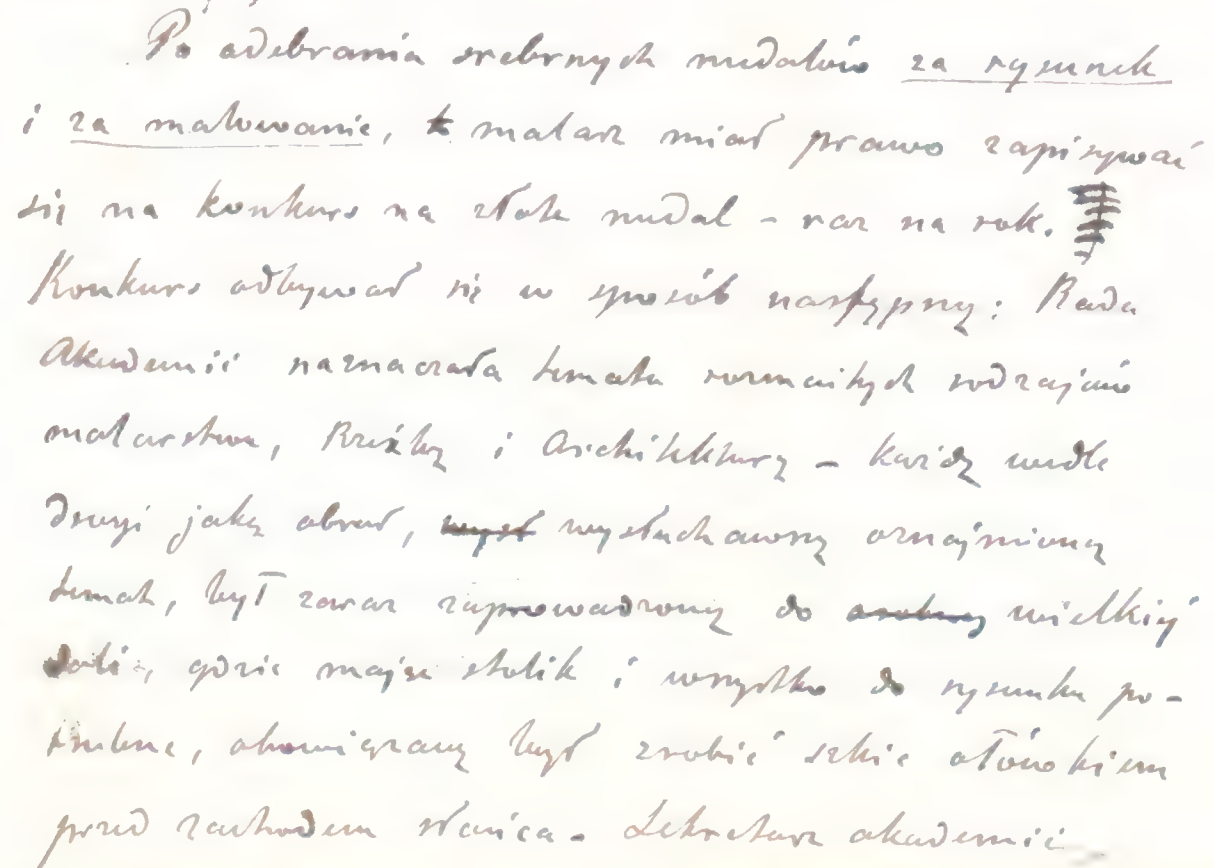 Po odebrania srebrnych medalów za rysunek
i za malowanie, malarz miał prawo zapisywać
się na konkurs na złote medal – raz na rok.
Konkurs odbywał się w sposób następny: Rada
Akademii naznaczała temata rozmaitych rodzajów
malarstwa, Rzeźby i Architektury – każdy wedle
drugi jaką obrał, wysłuchawszy oznajmiony
temat, był zaraz zaprowadzony do wielkiéj
sali, gdzie mając stolik i wszystko do rysunku po-
trzebne, obowiązany był zrobić szkic ołówkiem
przed zachodem słońca. Sekretarz akademii